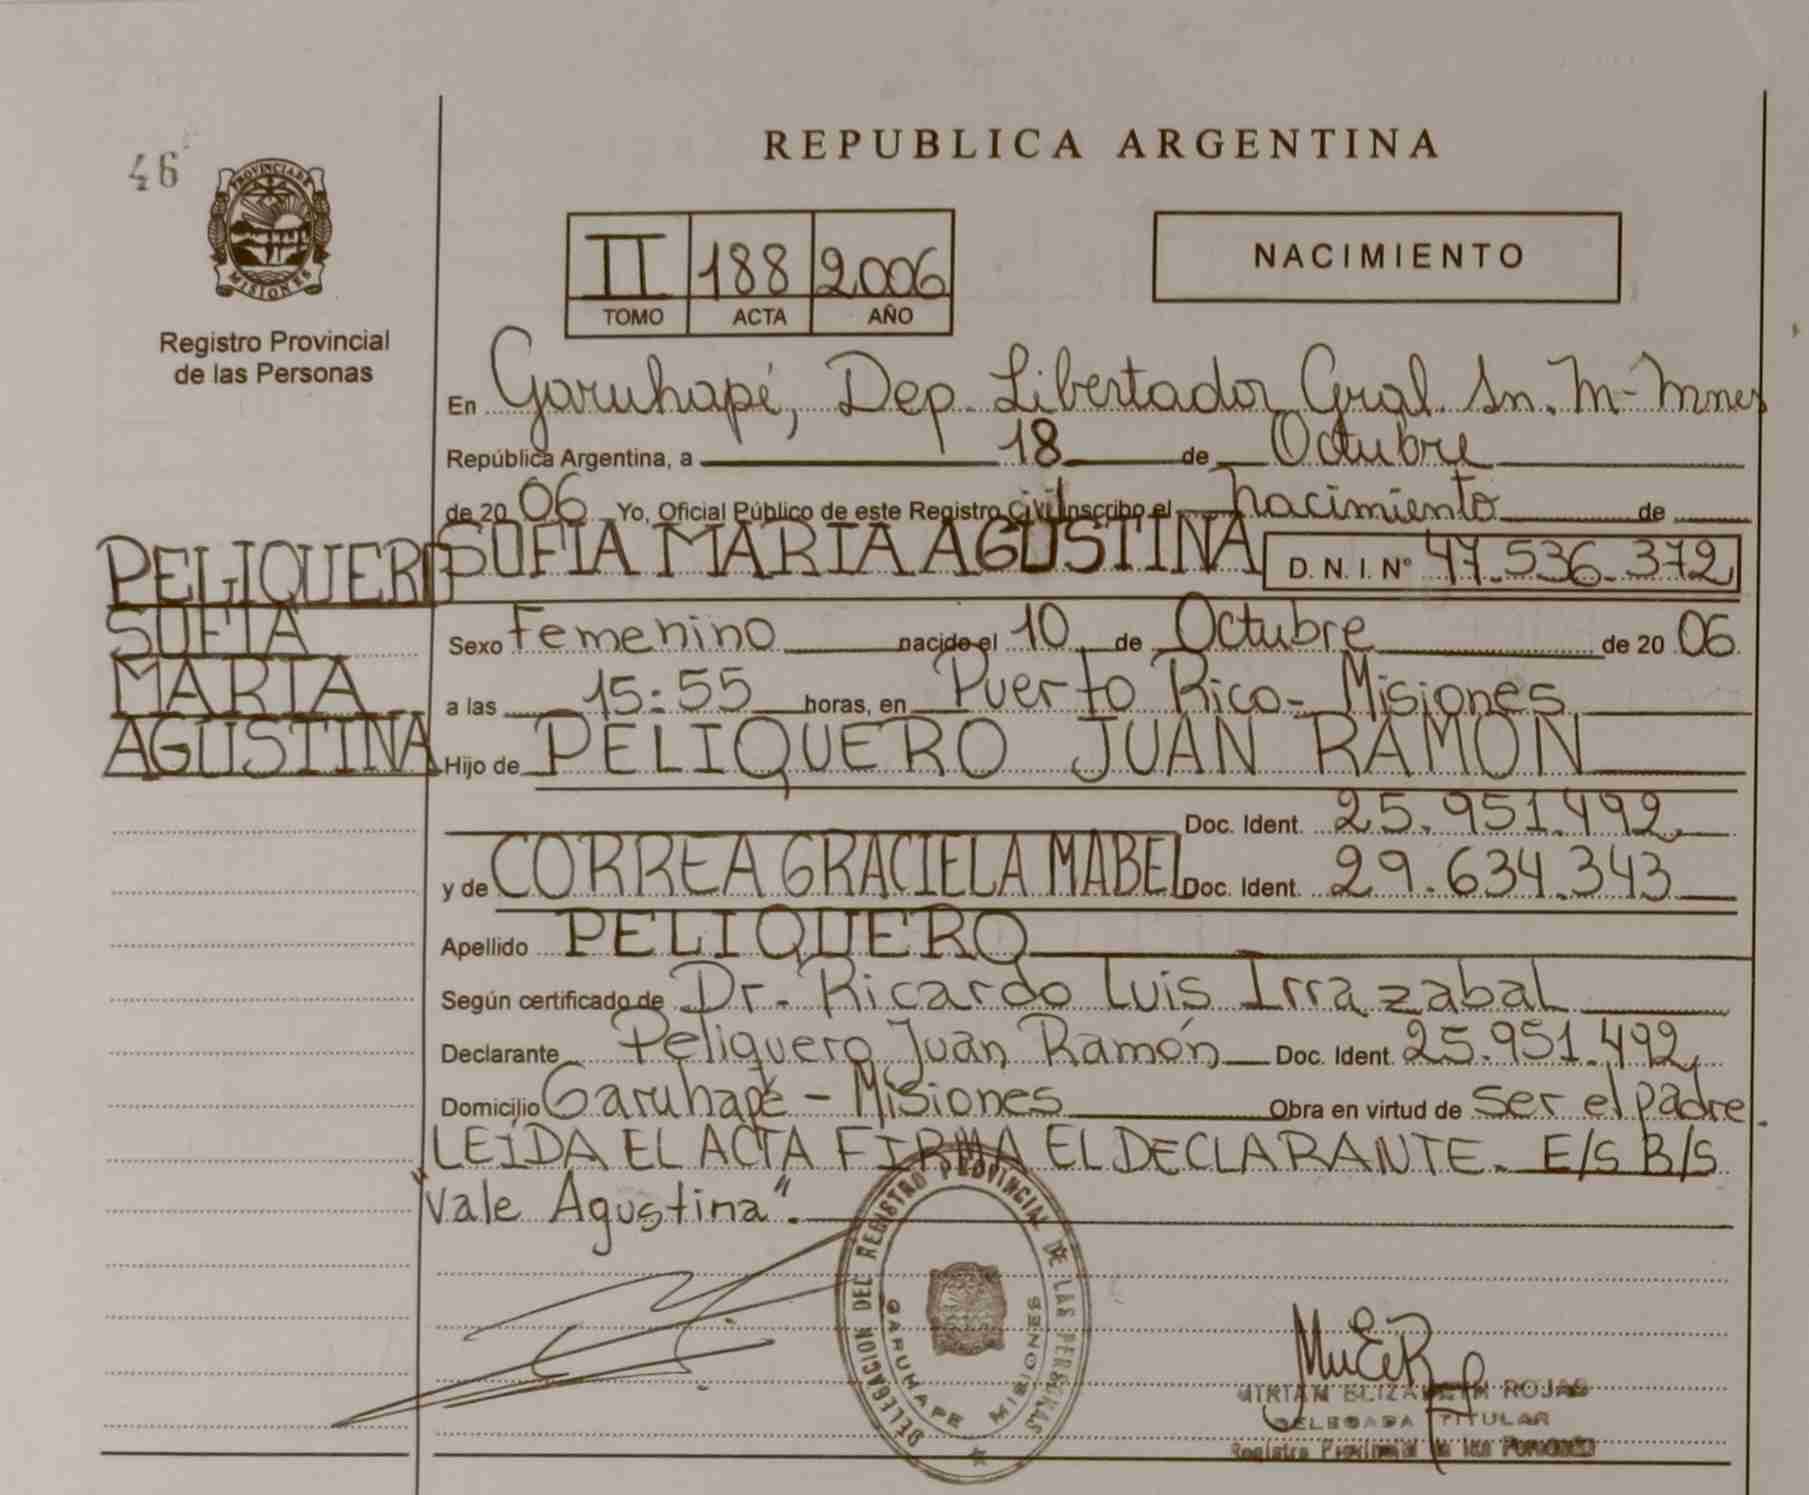 REPUBLICA ARGENTINA
46
PROVINCIA DE
MISIONES
Registro Provincial
de las Personas
II 188 2.006
TOMO ACTA AÑO
NACIMIENTO
En Garuhapé, Dep. Libertador Gral. Sn. M- Mnes
República Argentina, a 18 de Octubre
de 20 06 Yo, Oficial Público de este Registro Civil Inscribo el nacimiento de
SOFIA MARIA AGUSTINA D. N. I. Nº 47.536.372
PELIQUERO
SOFIA
MARIA
AGUSTINA
Sexo Femenino nacido el 10 de Octubre de 20 06
a las 15:55 horas, en Puerto Rico- Misiones
Hijo de PELIQUERO JUAN RAMON
Doc. Ident. 25.951.492
y de CORREA GRACIELA MABEL Doc. Ident. 29.634.343
Apellido PELIQUERO
Según certificado de Dr. Ricardo Luis Irrazabal
Declarante Peliquero Juan Ramón Doc. Ident. 25.951.492
Domicilio Garuhapé - Misiones Obra en virtud de ser el padre.
LEÍDA EL ACTA FIRMA EL DECLARANTE. E/S B/S
"Vale Agustina".
DELEGACION DEL REGISTRO PROVINCIAL DE LAS PERSONAS
GARUHAPE MISIONES
MIRIAM ELIZABETH ROJAS
DELEGADA TITULAR
Registro Provincial de las Personas